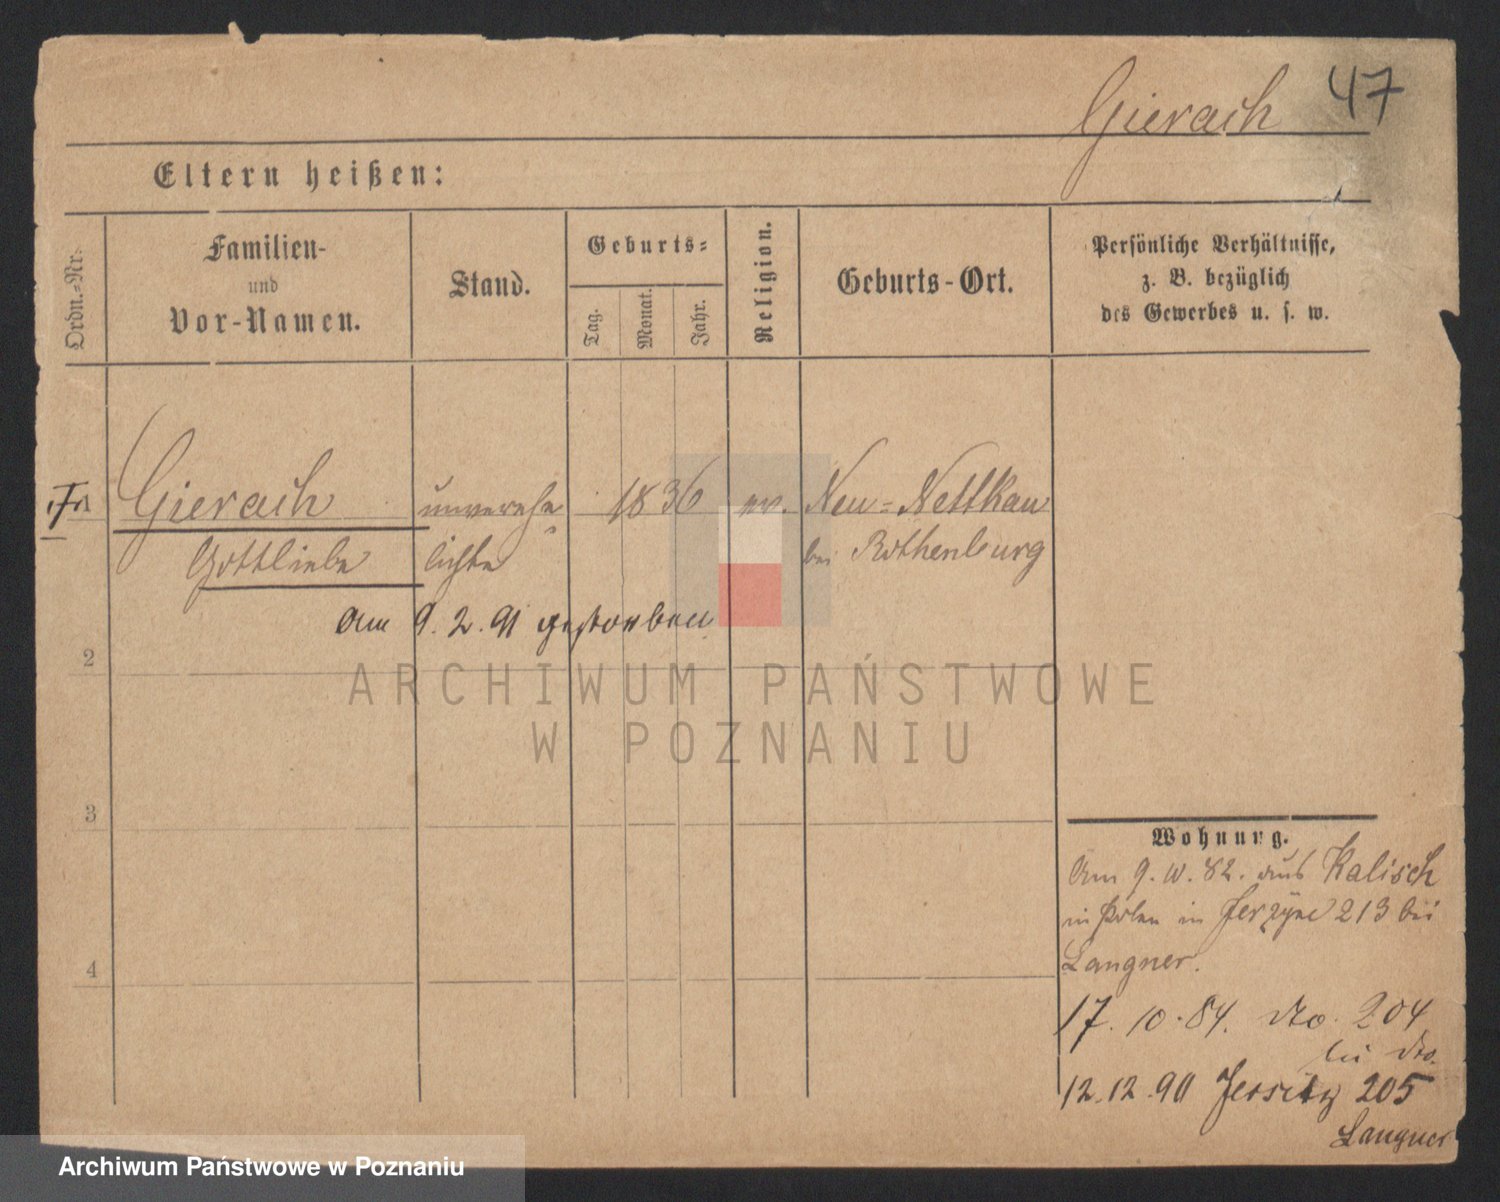 Gierach 47
Eltern heißen:
Ordn.-Nr.
Familien-
und
Vor-Namen.
Stand.
Geburts-
Tag.
Monat.
Jahr.
Religion.
Geburts-Ort.
Persönliche Verhältnisse,
z. B. bezüglich
des Gewerbes u. s. w.
1 Gierach unverehe 1836 ev. Neu-Nettkau
Gottliebe lichte bei Rothenburg
Am 9. 2. 91 gestorben
2
3
4
Wohnung.
Am 9. 10. 82. aus Kalisch
in Polen in Jerzyce 213 bei
Langner.
17. 10. 84. dto. 204
bei dto.
12. 12. 90 Jersitz 205
Langner
ARCHIWUM PAŃSTWOWE
W POZNANIU
Archiwum Państwowe w Poznaniu